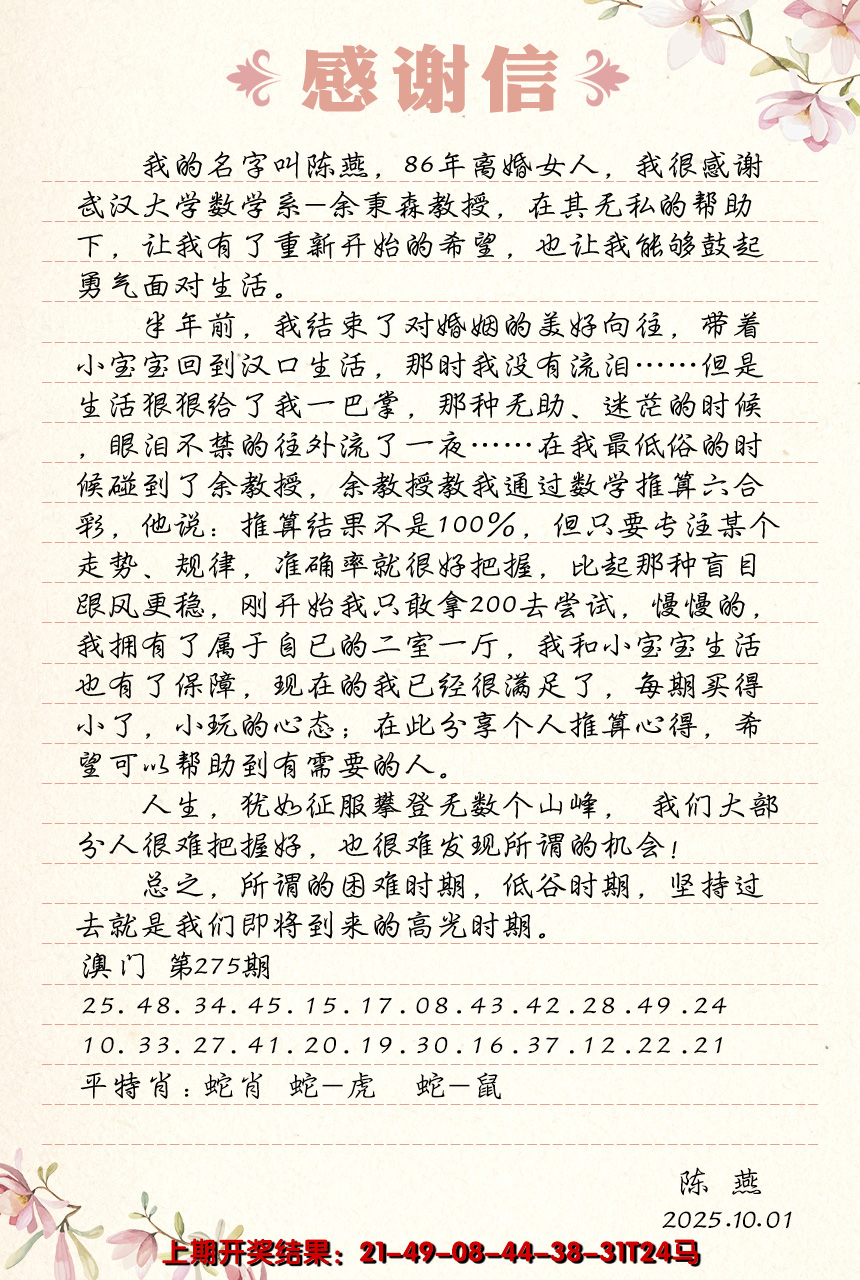 感谢信
我的名字叫陈燕，86年离婚女人，我很感谢
武汉大学数学系—余秉森教授，在其无私的帮助
下，让我有了重新开始的希望，也让我能够鼓起
勇气面对生活。
半年前，我结束了对婚姻的美好向往，带着
小宝宝回到汉口生活，那时我没有流泪……但是
生活狠狠给了我一巴掌，那种无助、迷茫的时候
，眼泪不禁的往外流了一夜……在我最低俗的时
候碰到了余教授，余教授教我通过数学推算六合
彩，他说：推算结果不是100%，但只要专注某个
走势、规律，准确率就很好把握，比起那种盲目
跟风更稳，刚开始我只敢拿200去尝试，慢慢的，
我拥有了属于自已的二室一厅，我和小宝宝生活
也有了保障，现在的我已经很满足了，每期买得
小了，小玩的心态；在此分享个人推算心得，希
望可以帮助到有需要的人。
人生，犹如征服攀登无数个山峰， 我们大部
分人很难把握好，也很难发现所谓的机会！
总之，所谓的困难时期，低谷时期，坚持过
去就是我们即将到来的高光时期。
澳门 第275期
25.48.34.45.15.17.08.43.42.28.49.24
10.33.27.41.20.19.30.16.37.12.22.21
平特肖：蛇肖 蛇—虎 蛇—鼠
陈 燕
2025.10.01
上期开奖结果：21-49-08-44-38-31T24马